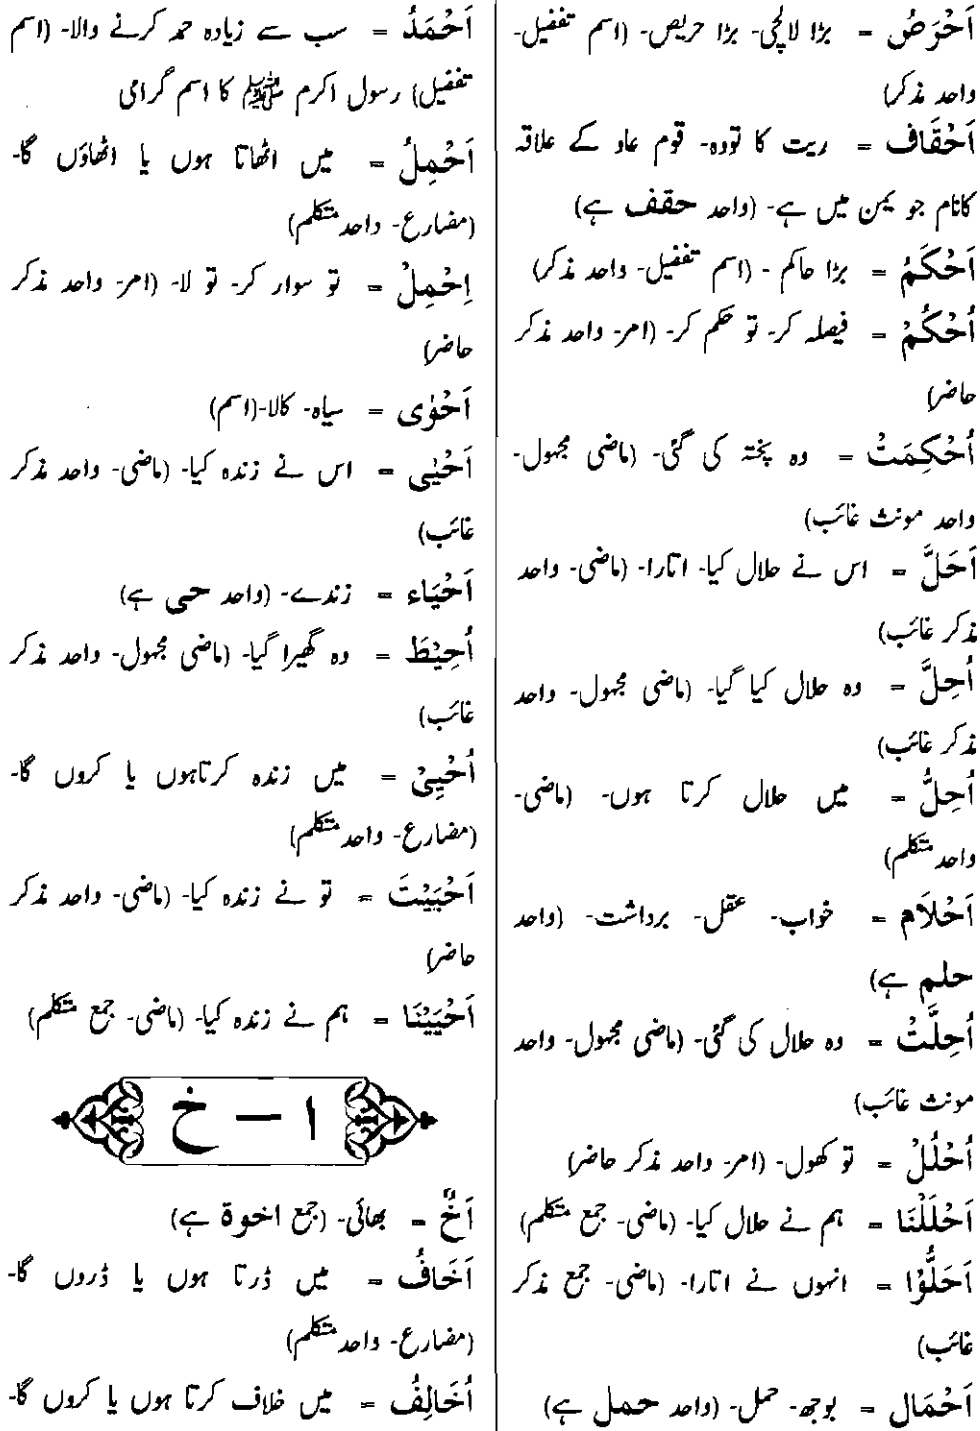 اَحْرَصُ = بڑا لالچی- بڑا حریص- (اسم تفضیل-
واحد مذکر)
اَحْقَاف = ریت کا تودہ- قوم عاد کے علاقہ
کانام جو یمن میں ہے- (واحد حقف ہے)
اَحْكَمُ = بڑا حاکم - (اسم تفضیل- واحد مذکر)
اُحْكُمْ = فیصلہ کر- تو حکم کر- (امر- واحد مذکر
حاضر)
اُحْكِمَتْ = وہ پختہ کی گئی- (ماضی مجہول-
واحد مونث غائب)
اَحَلَّ = اس نے حلال کیا- اتارا- (ماضی- واحد
مذکر غائب)
اُحِلَّ = وہ حلال کیا گیا- (ماضی مجہول- واحد
مذکر غائب)
اُحِلُّ = میں حلال کرتا ہوں- (ماضی-
واحد متکلم)
اَحْلَام = خواب- عقل- برداشت- (واحد
حلم ہے)
اُحِلَّتْ = وہ حلال کی گئی- (ماضی مجہول- واحد
مونث غائب)
اُحْلُلْ = تو کھول- (امر- واحد مذکر حاضر)
اَحْلَلْنَا = ہم نے حلال کیا- (ماضی- جمع متکلم)
اَحَلُّوْا = انہوں نے اتارا- (ماضی- جمع مذکر
غائب)
اَحْمَال = بوجھ- حمل- (واحد حمل ہے)
اَحْمَدُ = سب سے زیادہ حمد کرنے والا- (اسم
تفضیل) رسول اکرم ﷺ کا اسم گرامی
اَحْمِلُ = میں اٹھاتا ہوں یا اٹھاؤں گا-
(مضارع- واحد متکلم)
اِحْمِلْ = تو سوار کر- تو لا- (امر- واحد مذکر
حاضر)
اَحْوٰى = سیاہ- کالا-(اسم)
اَحْيٰى = اس نے زندہ کیا- (ماضی- واحد مذکر
غائب)
اَحْيَاء = زندے- (واحد حی ہے)
اُحِيْطَ = وہ گھیرا گیا- (ماضی مجہول- واحد مذکر
غائب)
اُحْيِيْ = میں زندہ کرتاہوں یا کروں گا-
(مضارع- واحد متکلم)
اَحْيَيْتَ = تو نے زندہ کیا- (ماضی- واحد مذکر
حاضر)
اَحْيَيْنَا = ہم نے زندہ کیا- (ماضی- جمع متکلم)
ا – خ
اَخٌ = بھائی- (جمع اخوة ہے)
اَخَافُ = میں ڈرتا ہوں یا ڈروں گا-
(مضارع- واحد متکلم)
اُخَالِفُ = میں خلاف کرتا ہوں یا کروں گا-